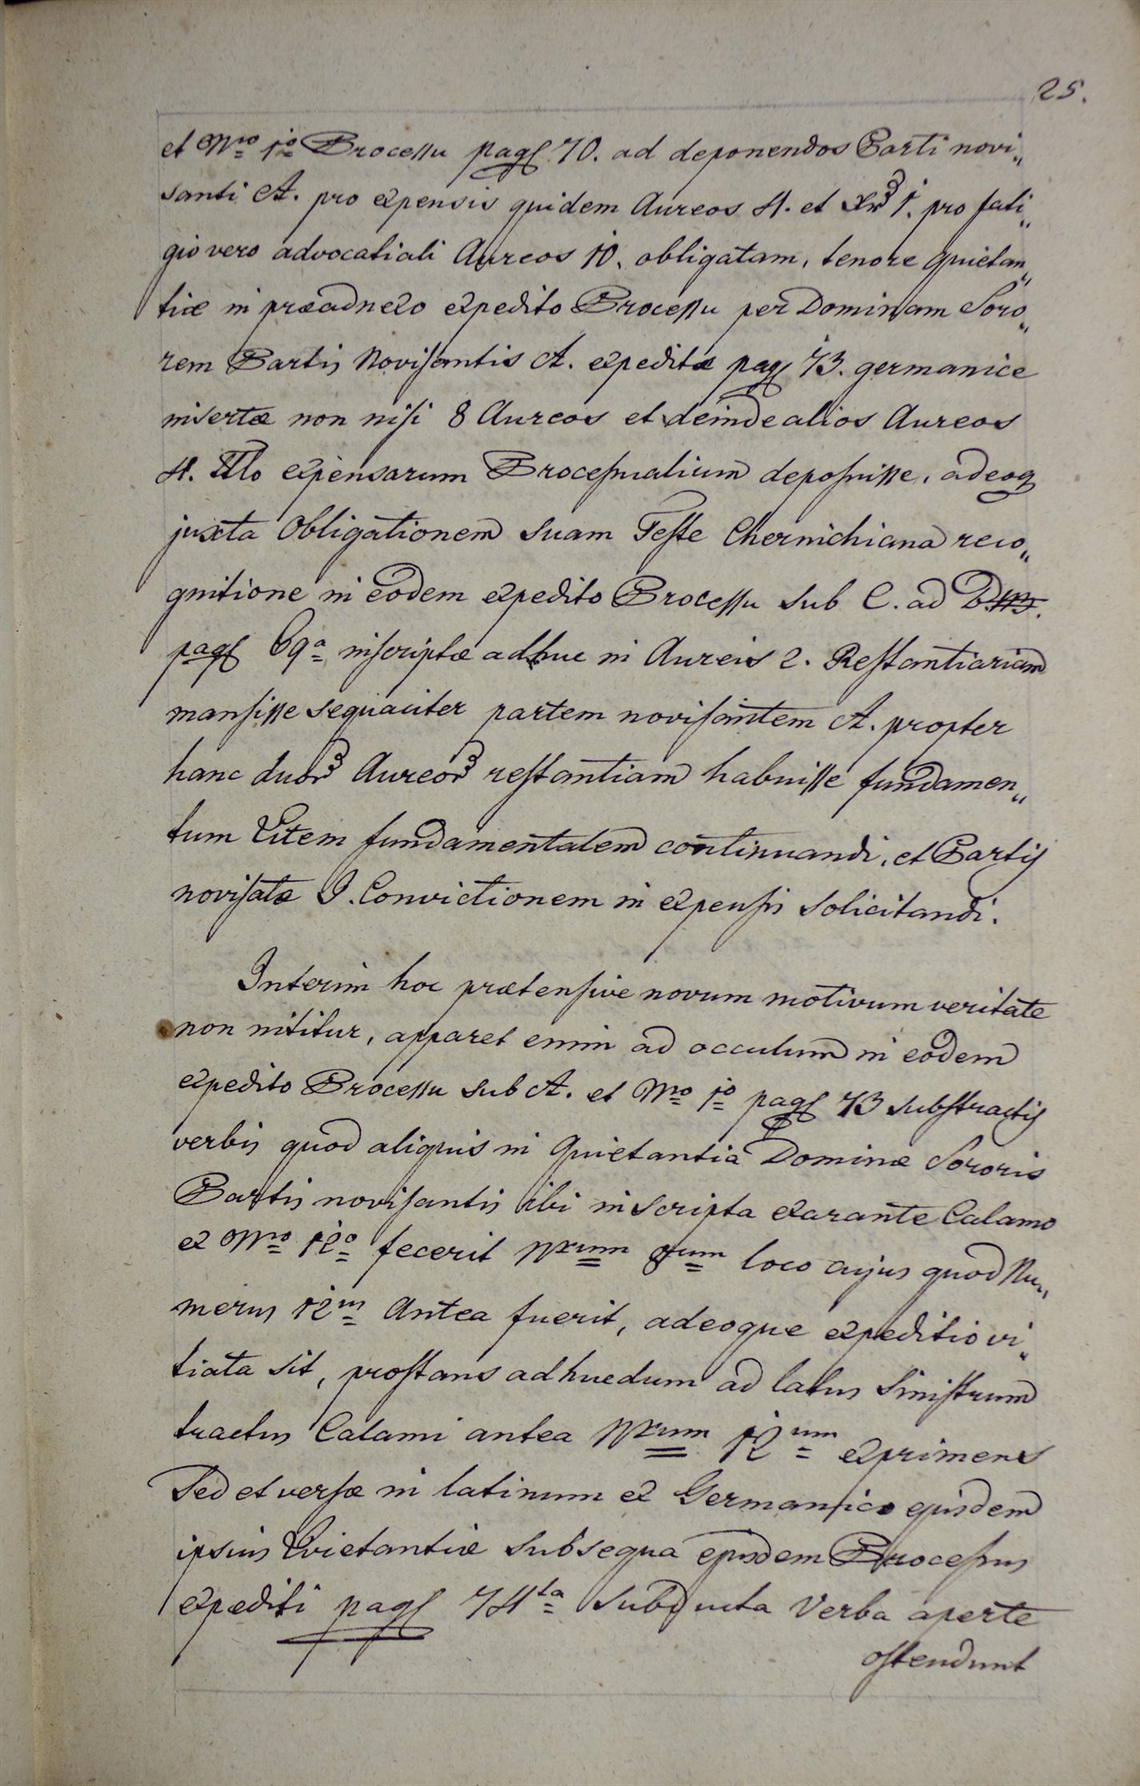 25.
et Nro 1o Processu pag 70. ad deponendos Parti novi„
santi A. pro expensis quidem Aureos 4. et Xr 1. pro fati„
gio vero advocatiali Aureos 10. obligatam, tenore Quietan„
tiæ in præadnexo expedito Processu per Dominam Soro„
rem Partis Novisantis A. expeditæ pag 73. germanice
insertæ non nisi 8 Aureos et deinde alios Aureos
4. Tlo expensarum Processualium deposuisse, adeoq
juxta Obligationem suam Teste Chernichiana reco„
gnitione in eodem expedito Processu sub C. ad
pag 69a inscriptæ adhuc in Aureis 2. Restantiariam
mansisse sequaciter partem novisantem A. propter
hanc duor Aureor restantiam habuisse fundamen„
tum Litem fundamentalem continuandi, et Partis
novisatæ I. Convictionem in expensis solicitandi.
Interim hoc prætensive novum motivum veritate
non nititur, apparet enim ad occulum in eodem
expedito Processu sub A. et Nro 1o pag 73 substractis
verbis quod aliquis in Quietantia Dominæ Sororis
Partis novisantis ibi inscripta exarante Calamo
ex Nro 12o fecerit Nrum 8um loco cujus quod Nu„
merus 12us Antea fuerit, adeoque expeditio vi„
tiata sit, prostans adhucdum ad latus Sinistrum
tractus Calami antea Nrum 12um exprimens
Sed et versæ in latinum ex Germanico ejusdem
ipsius Quietantiæ subsequa ejusdem Processus
expediti pag 74ta subducta Verba aperte
ostendunt